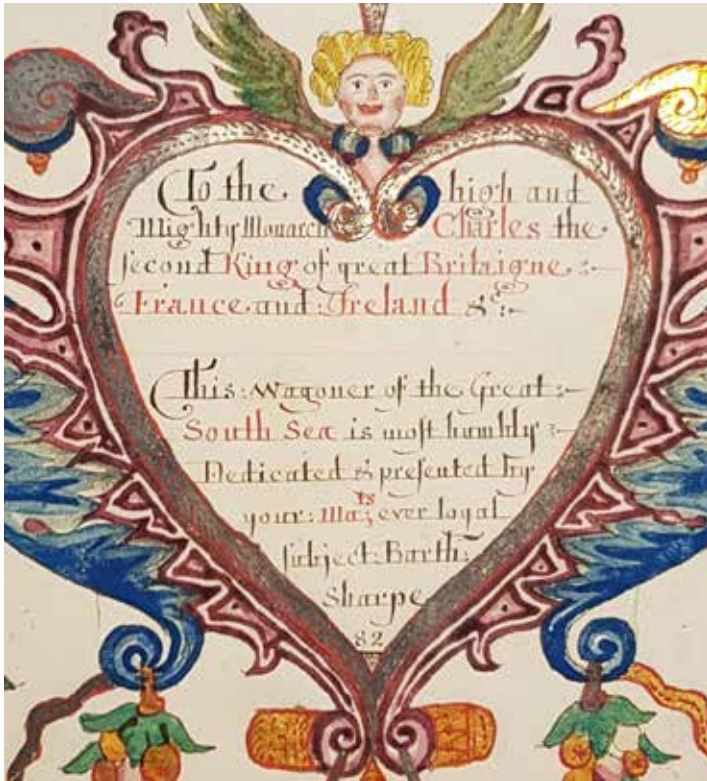 To the high and
Mighty Monarch Charles the
second King of great Britaigne :-
France and Ireland &c:-
This: Wagoner of the Great :-
South Sea is most humbly :-
Dedicated & presented by
your: Maties ever loyal
subject: Barth:
Sharpe
82